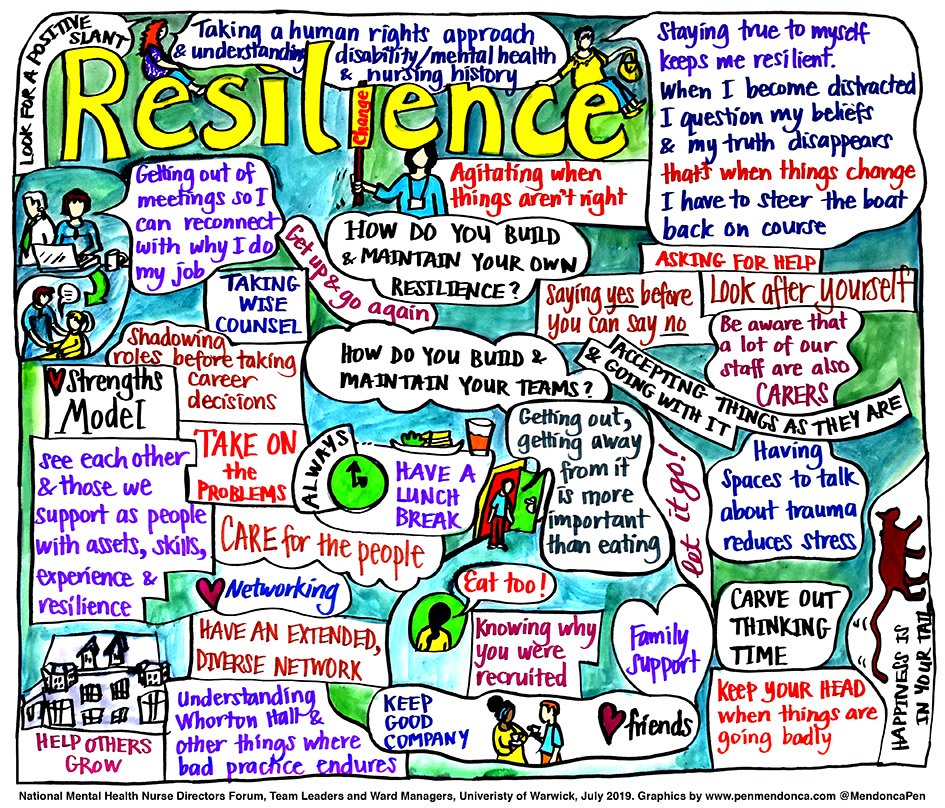 LOOK FOR A POSITIVE
SLANT
Taking a human rights approach
& understanding disability/mental health
& nursing history
Resilience
Change
Staying true to myself
keeps me resilient.
When I become distracted
I question my beliefs
& my truth disappears
that's when things change
I have to steer the boat
back on course
Getting out of
meetings so I
can reconnect
with why I do
my job
Agitating when
things aren't right
HOW DO YOU BUILD
& MAINTAIN YOUR OWN
RESILIENCE?
Get up & go again
ASKING FOR HELP
TAKING
WISE
COUNSEL
Saying yes before
you can say no
Look after yourself
Be aware that
a lot of our
staff are also
CARERS
Shadowing
roles before taking
career
decisions
HOW DO YOU BUILD &
MAINTAIN YOUR TEAMS?
ACCEPTING THINGS AS THEY ARE
& GOING WITH IT
Strengths
Model
TAKE ON
the
PROBLEMS
ALWAYS
HAVE A
LUNCH
BREAK
Getting out,
getting away
from it
is more
important
than eating
let it go!
Having
Spaces to talk
about trauma
reduces stress
see each other
& those we
support as people
with assets, skills,
experience &
resilience
CARE for the people
Networking
Eat too!
HAVE AN EXTENDED,
DIVERSE NETWORK
Knowing why
you were
recruited
Family
support
CARVE OUT
THINKING
TIME
HAPPINESS IS
IN YOUR TAIL
HELP OTHERS
GROW
Understanding
Whorton Hall &
other things where
bad practice endures
KEEP
GOOD
COMPANY
friends
KEEP YOUR HEAD
when things are
going badly
National Mental Health Nurse Directors Forum, Team Leaders and Ward Managers, Univeristy of Warwick, July 2019. Graphics by www.penmendonca.com @MendoncaPen